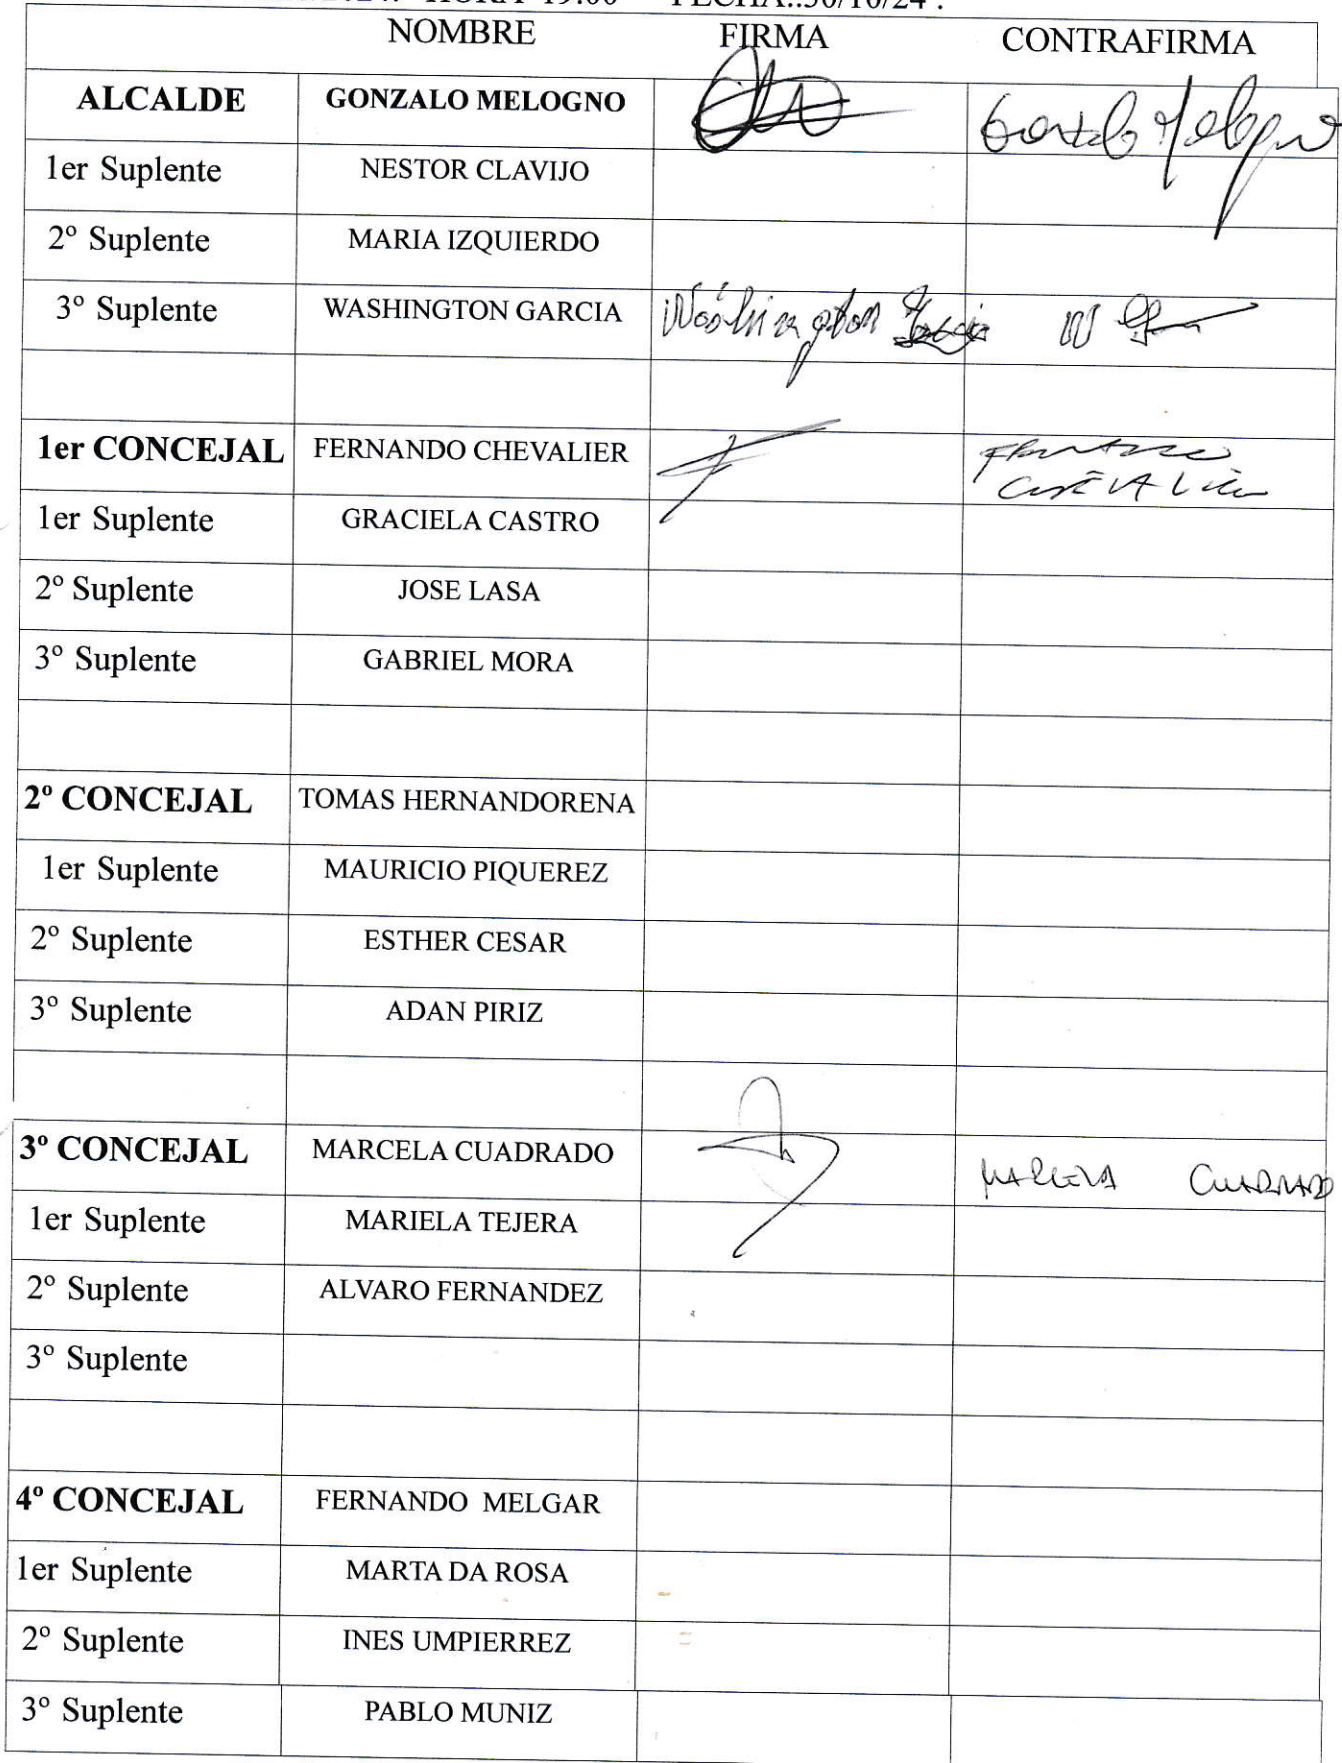 HORA 19:00 FECHA.:30/10/24 .
NOMBRE FIRMA CONTRAFIRMA
ALCALDE GONZALO MELOGNO Gonzalo Melogno
1er Suplente NESTOR CLAVIJO
2º Suplente MARIA IZQUIERDO
3º Suplente WASHINGTON GARCIA Washington Garcia W
1er CONCEJAL FERNANDO CHEVALIER Fernando
CHEVALier
1er Suplente GRACIELA CASTRO
2º Suplente JOSE LASA
3º Suplente GABRIEL MORA
2º CONCEJAL TOMAS HERNANDORENA
1er Suplente MAURICIO PIQUEREZ
2º Suplente ESTHER CESAR
3º Suplente ADAN PIRIZ
3º CONCEJAL MARCELA CUADRADO MARCELA CUADRADO
1er Suplente MARIELA TEJERA
2º Suplente ALVARO FERNANDEZ
3º Suplente
4º CONCEJAL FERNANDO MELGAR
1er Suplente MARTA DA ROSA
2º Suplente INES UMPIERREZ
3º Suplente PABLO MUNIZ